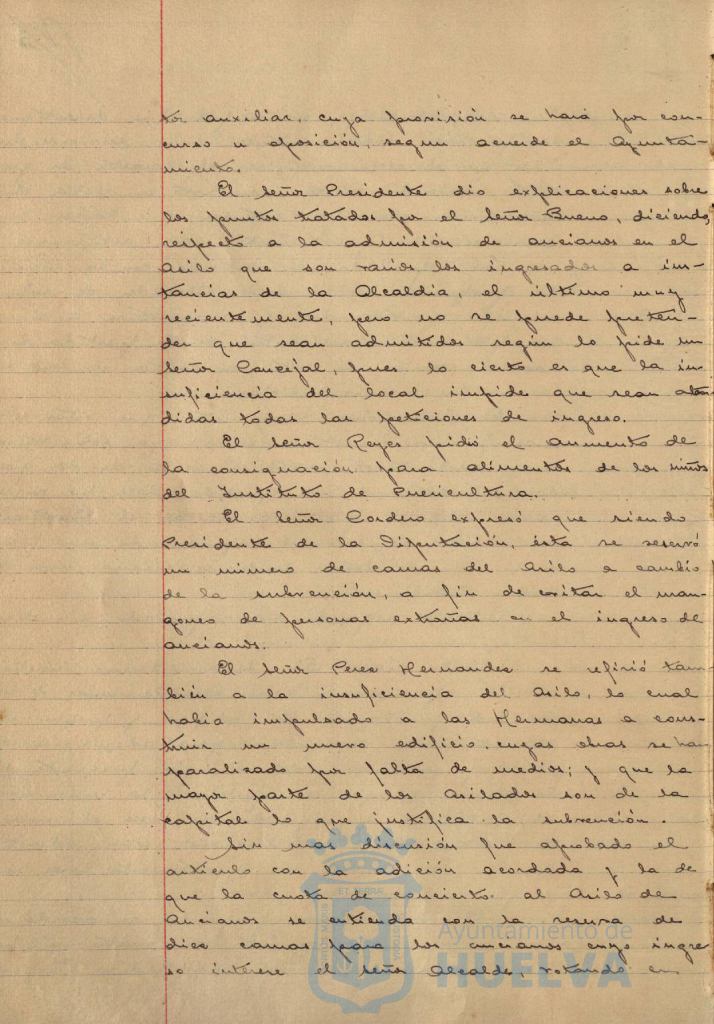 tor auxiliar, cuya provisión se hará por con-
curso u oposición, segun acuerde el Ayunta-
miento.
El Señor Presidente dio explicaciones sobre
los puntos tratados por el Señor Bueno, diciendo,
respecto a la admisión de ancianos en el
Asilo que son varios los ingresados a ins-
tancias de la Alcaldia, el último muy
recientemente, pero no se puede preten-
der que sean admitidos según lo pide un
Señor Concejal, pues lo cierto es que la in-
suficiencia del local impide que sean aten
didas todas las peticiones de ingreso.
El Señor Reyes pidió el aumento de
la consignación para alimentos de los niños
del Instituto de Puericultura.
El Señor Cordero expresó que siendo
Presidente de la Diputación, ésta se reservó
un número de camas del Asilo a cambio
de la subvención, a fin de evitar el man-
goneo de personas extrañas en el ingreso de
ancianos.
El Señor Perez Hernandez se refirió tam-
bién a la insuficiencia del Asilo, lo cual
habia impulsado a las Hermanas a cons-
truir un nuevo edificio, cuyas obras se han
paralizado por falta de medios; y que la
mayor parte de los Asilados son de la
capital lo que justifica la subvención.
Sin mas discusión fue aprobado el
artículo con la adición acordada y la de
que la cuota de concierto al Asilo de
Ancianos se entienda con la reserva de
diez camas para los ancianos cuyo ingre
so interese el Señor Alcalde, votando en
Ayuntamiento de
HUELVA